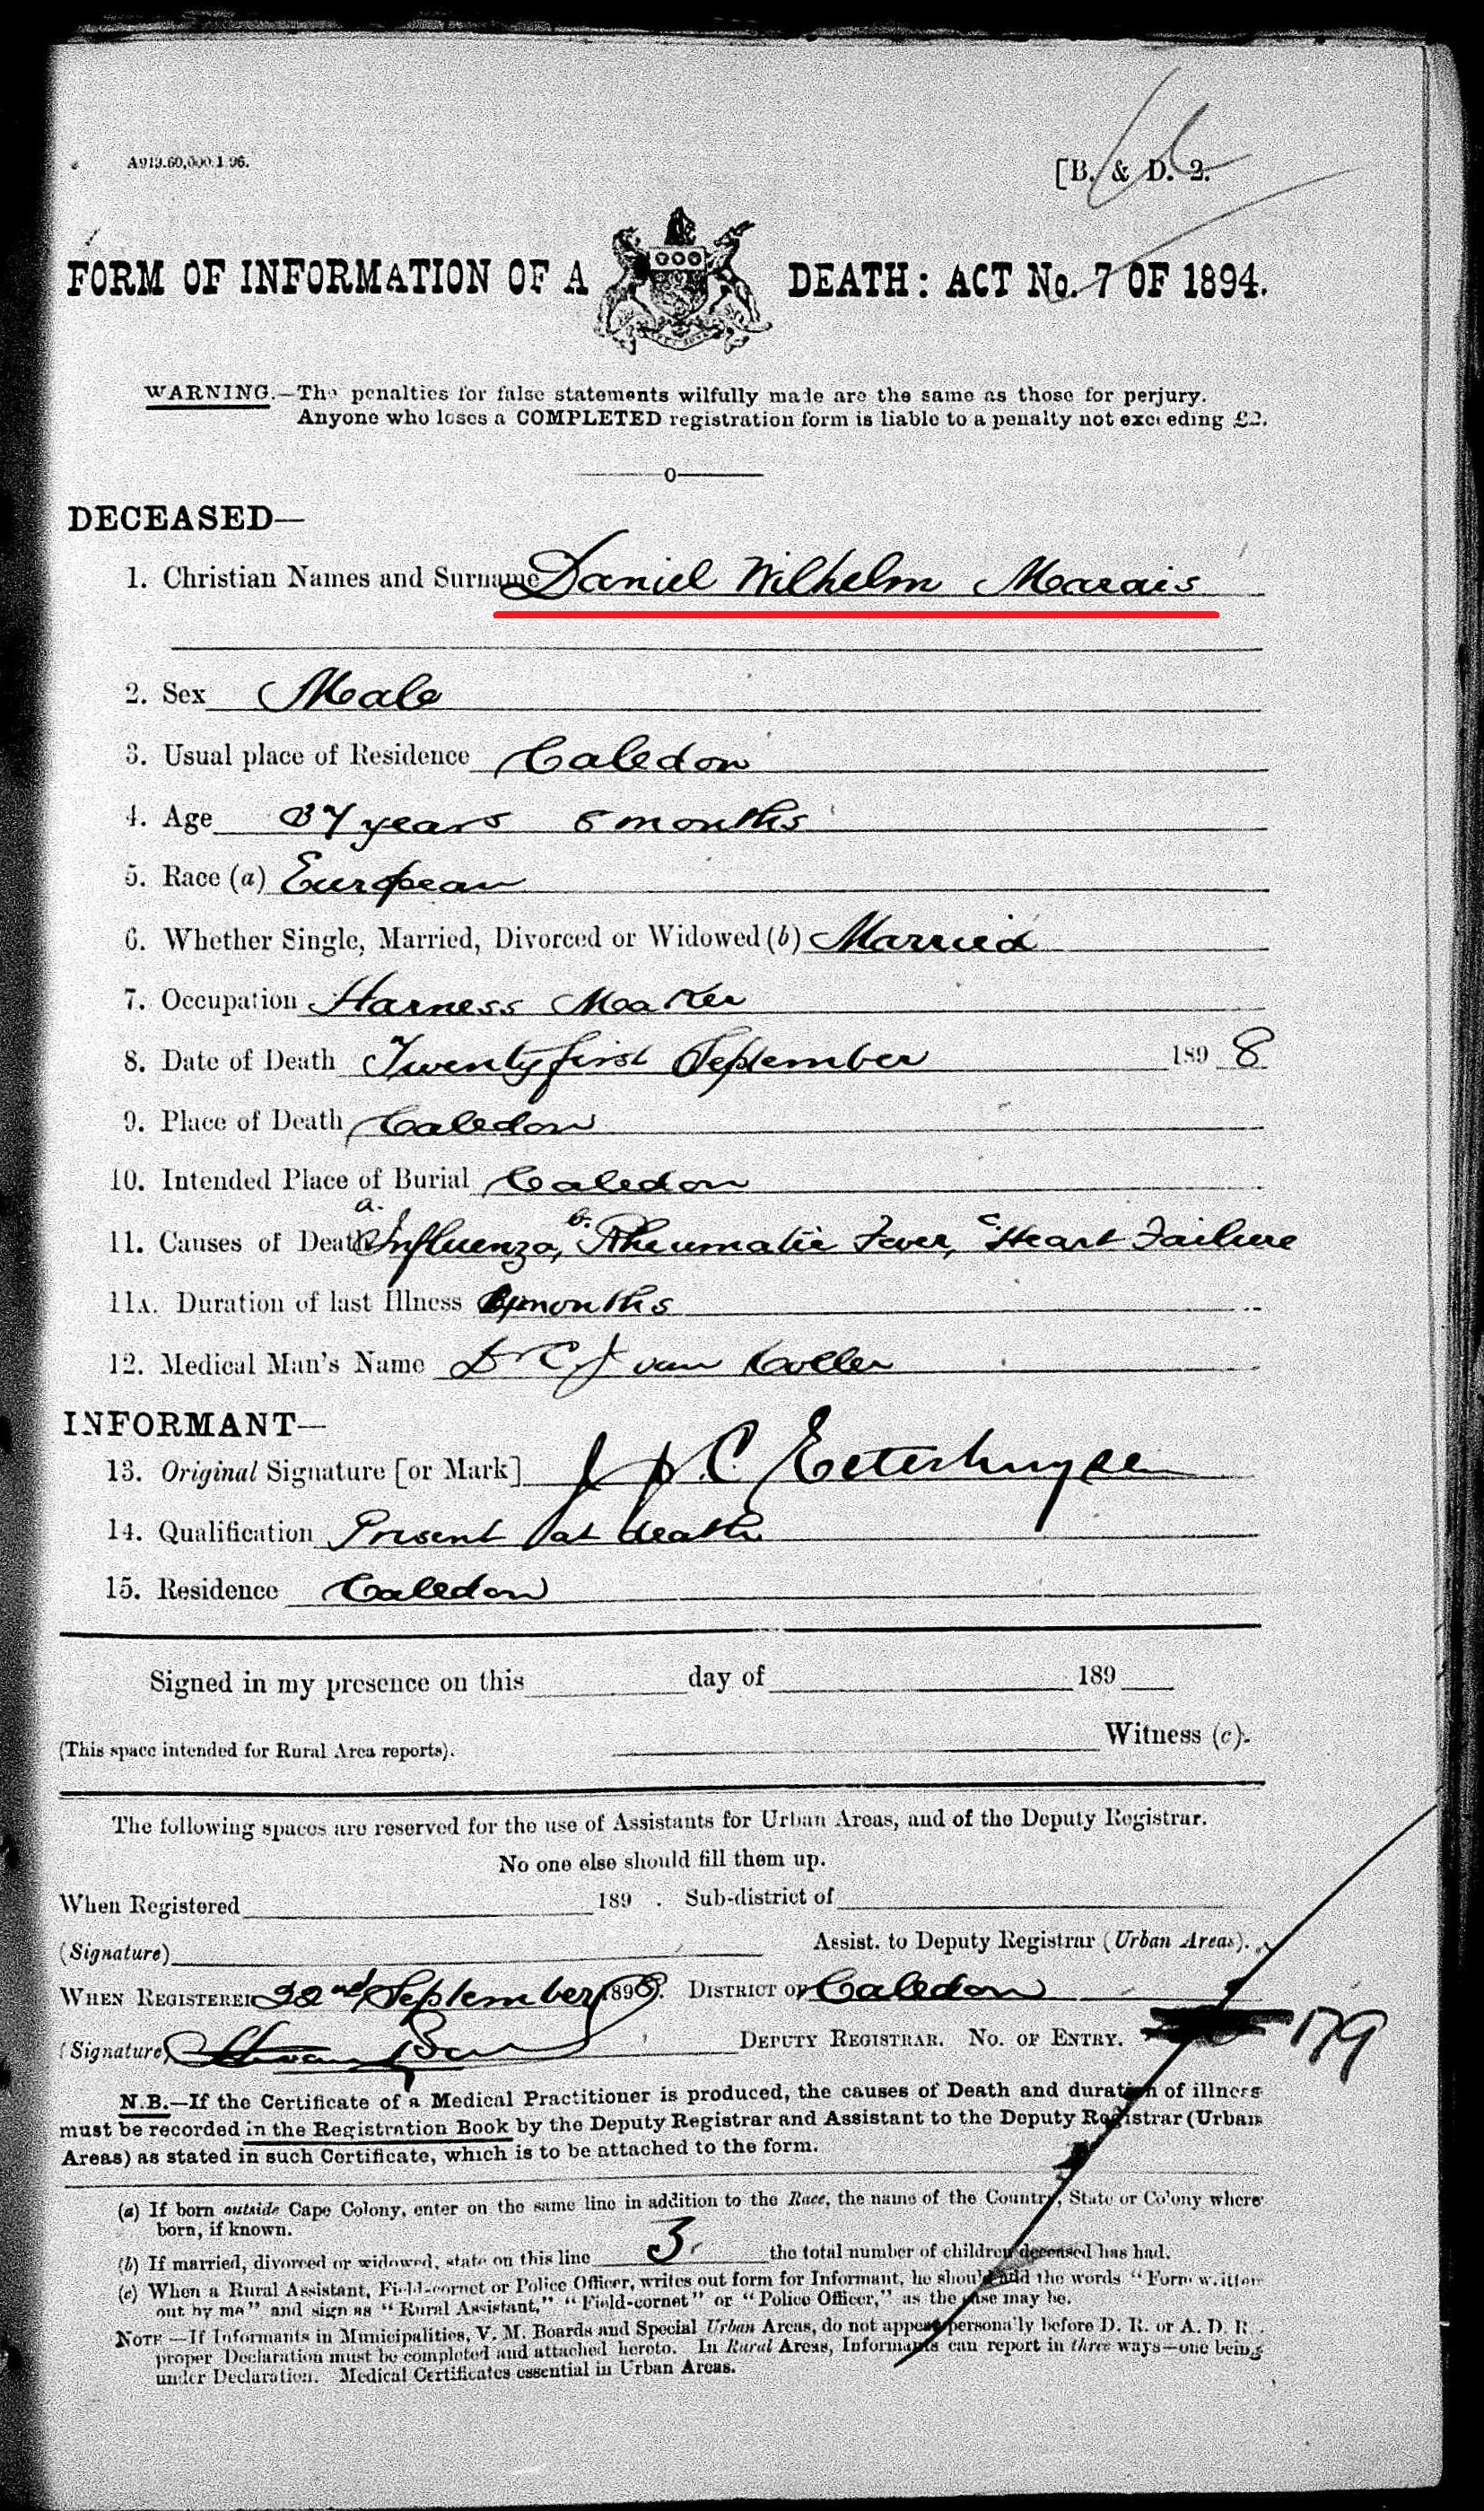 A919.60,000.1.96.
[B. & D. 2.
FORM OF INFORMATION OF A DEATH: ACT No. 7 OF 1894.
WARNING.—The penalties for false statements wilfully made are the same as those for perjury.
Anyone who loses a COMPLETED registration form is liable to a penalty not exceeding £2.
DECEASED—
1. Christian Names and Surname Daniel Wilhelm Marais
2. Sex Male
3. Usual place of Residence Caledon
4. Age 37 years 8 months
5. Race (a) European
6. Whether Single, Married, Divorced or Widowed (b) Married
7. Occupation Harness Maker
8. Date of Death Twenty first September 1898
9. Place of Death Caledon
10. Intended Place of Burial Caledon
11. Causes of Death a. Influenza, b. Rheumatic Fever, c. Heart Failure
11A. Duration of last Illness months
12. Medical Man's Name Dr C J van
INFORMANT—
13. Original Signature [or Mark] C Eeterhuysen
14. Qualification Present at death
15. Residence Caledon
Signed in my presence on this day of 189
Witness (c).
(This space intended for Rural Area reports).
The following spaces are reserved for the use of Assistants for Urban Areas, and of the Deputy Registrar.
No one else should fill them up.
When Registered 189 . Sub-district of
(Signature) Assist. to Deputy Registrar (Urban Areas).
WHEN REGISTERED 22nd September 1898. DISTRICT OF Caledon
(Signature) DEPUTY REGISTRAR. No. OF ENTRY. 179
N.B.—If the Certificate of a Medical Practitioner is produced, the causes of Death and duration of illness
must be recorded in the Registration Book by the Deputy Registrar and Assistant to the Deputy Registrar (Urban
Areas) as stated in such Certificate, which is to be attached to the form.
(a) If born outside Cape Colony, enter on the same line in addition to the Race, the name of the Country, State or Colony where
born, if known.
(b) If married, divorced or widowed, state on this line 3. the total number of children deceased has had.
(c) When a Rural Assistant, Field-cornet or Police Officer, writes out form for Informant, he should add the words "Form written
out by me" and sign as "Rural Assistant," "Field-cornet" or "Police Officer," as the case may be.
NOTE—If Informants in Municipalities, V. M. Boards and Special Urban Areas, do not appear personally before D. R. or A. D. R.
proper Declaration must be completed and attached hereto. In Rural Areas, Informants can report in three ways—one being
under Declaration. Medical Certificates essential in Urban Areas.